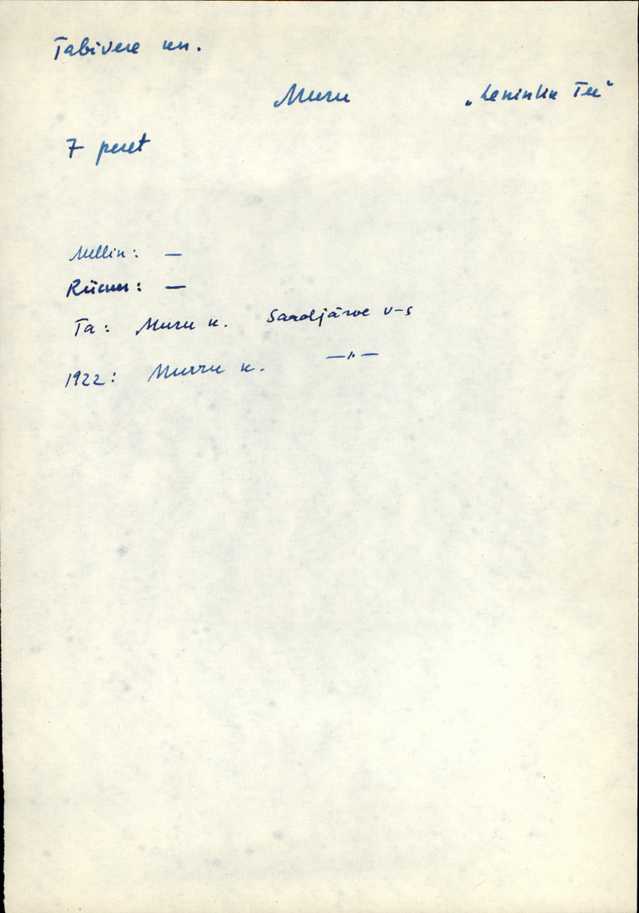 Tabivere kn.
Muru „Leninliku Tee"
7 peret
Mellin: —
Rücker: —
Ta: Muru k. Saadjärve v-s
1922: Murru k. —"—